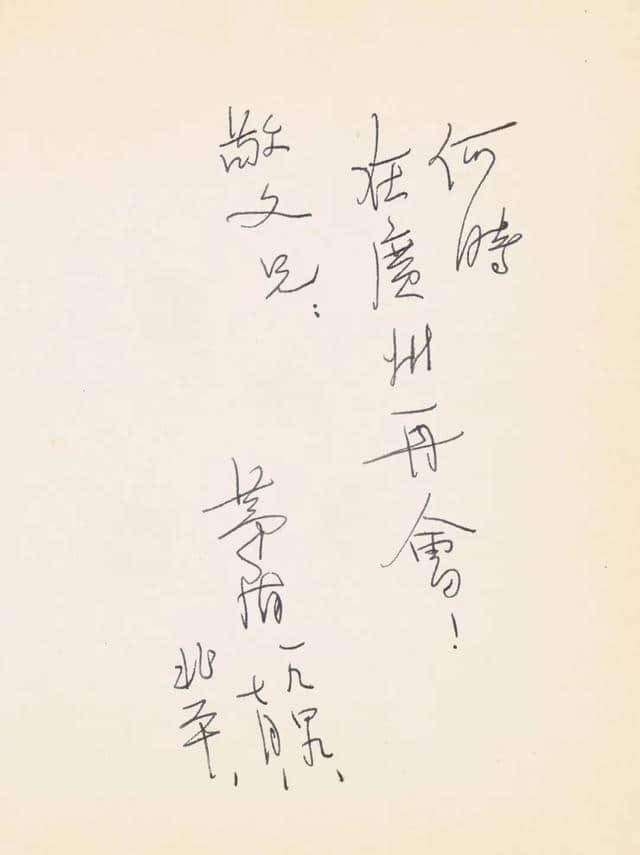 何時
在廣州再會!
敬文兄:
茅盾
一九四九、
七月、
北平、